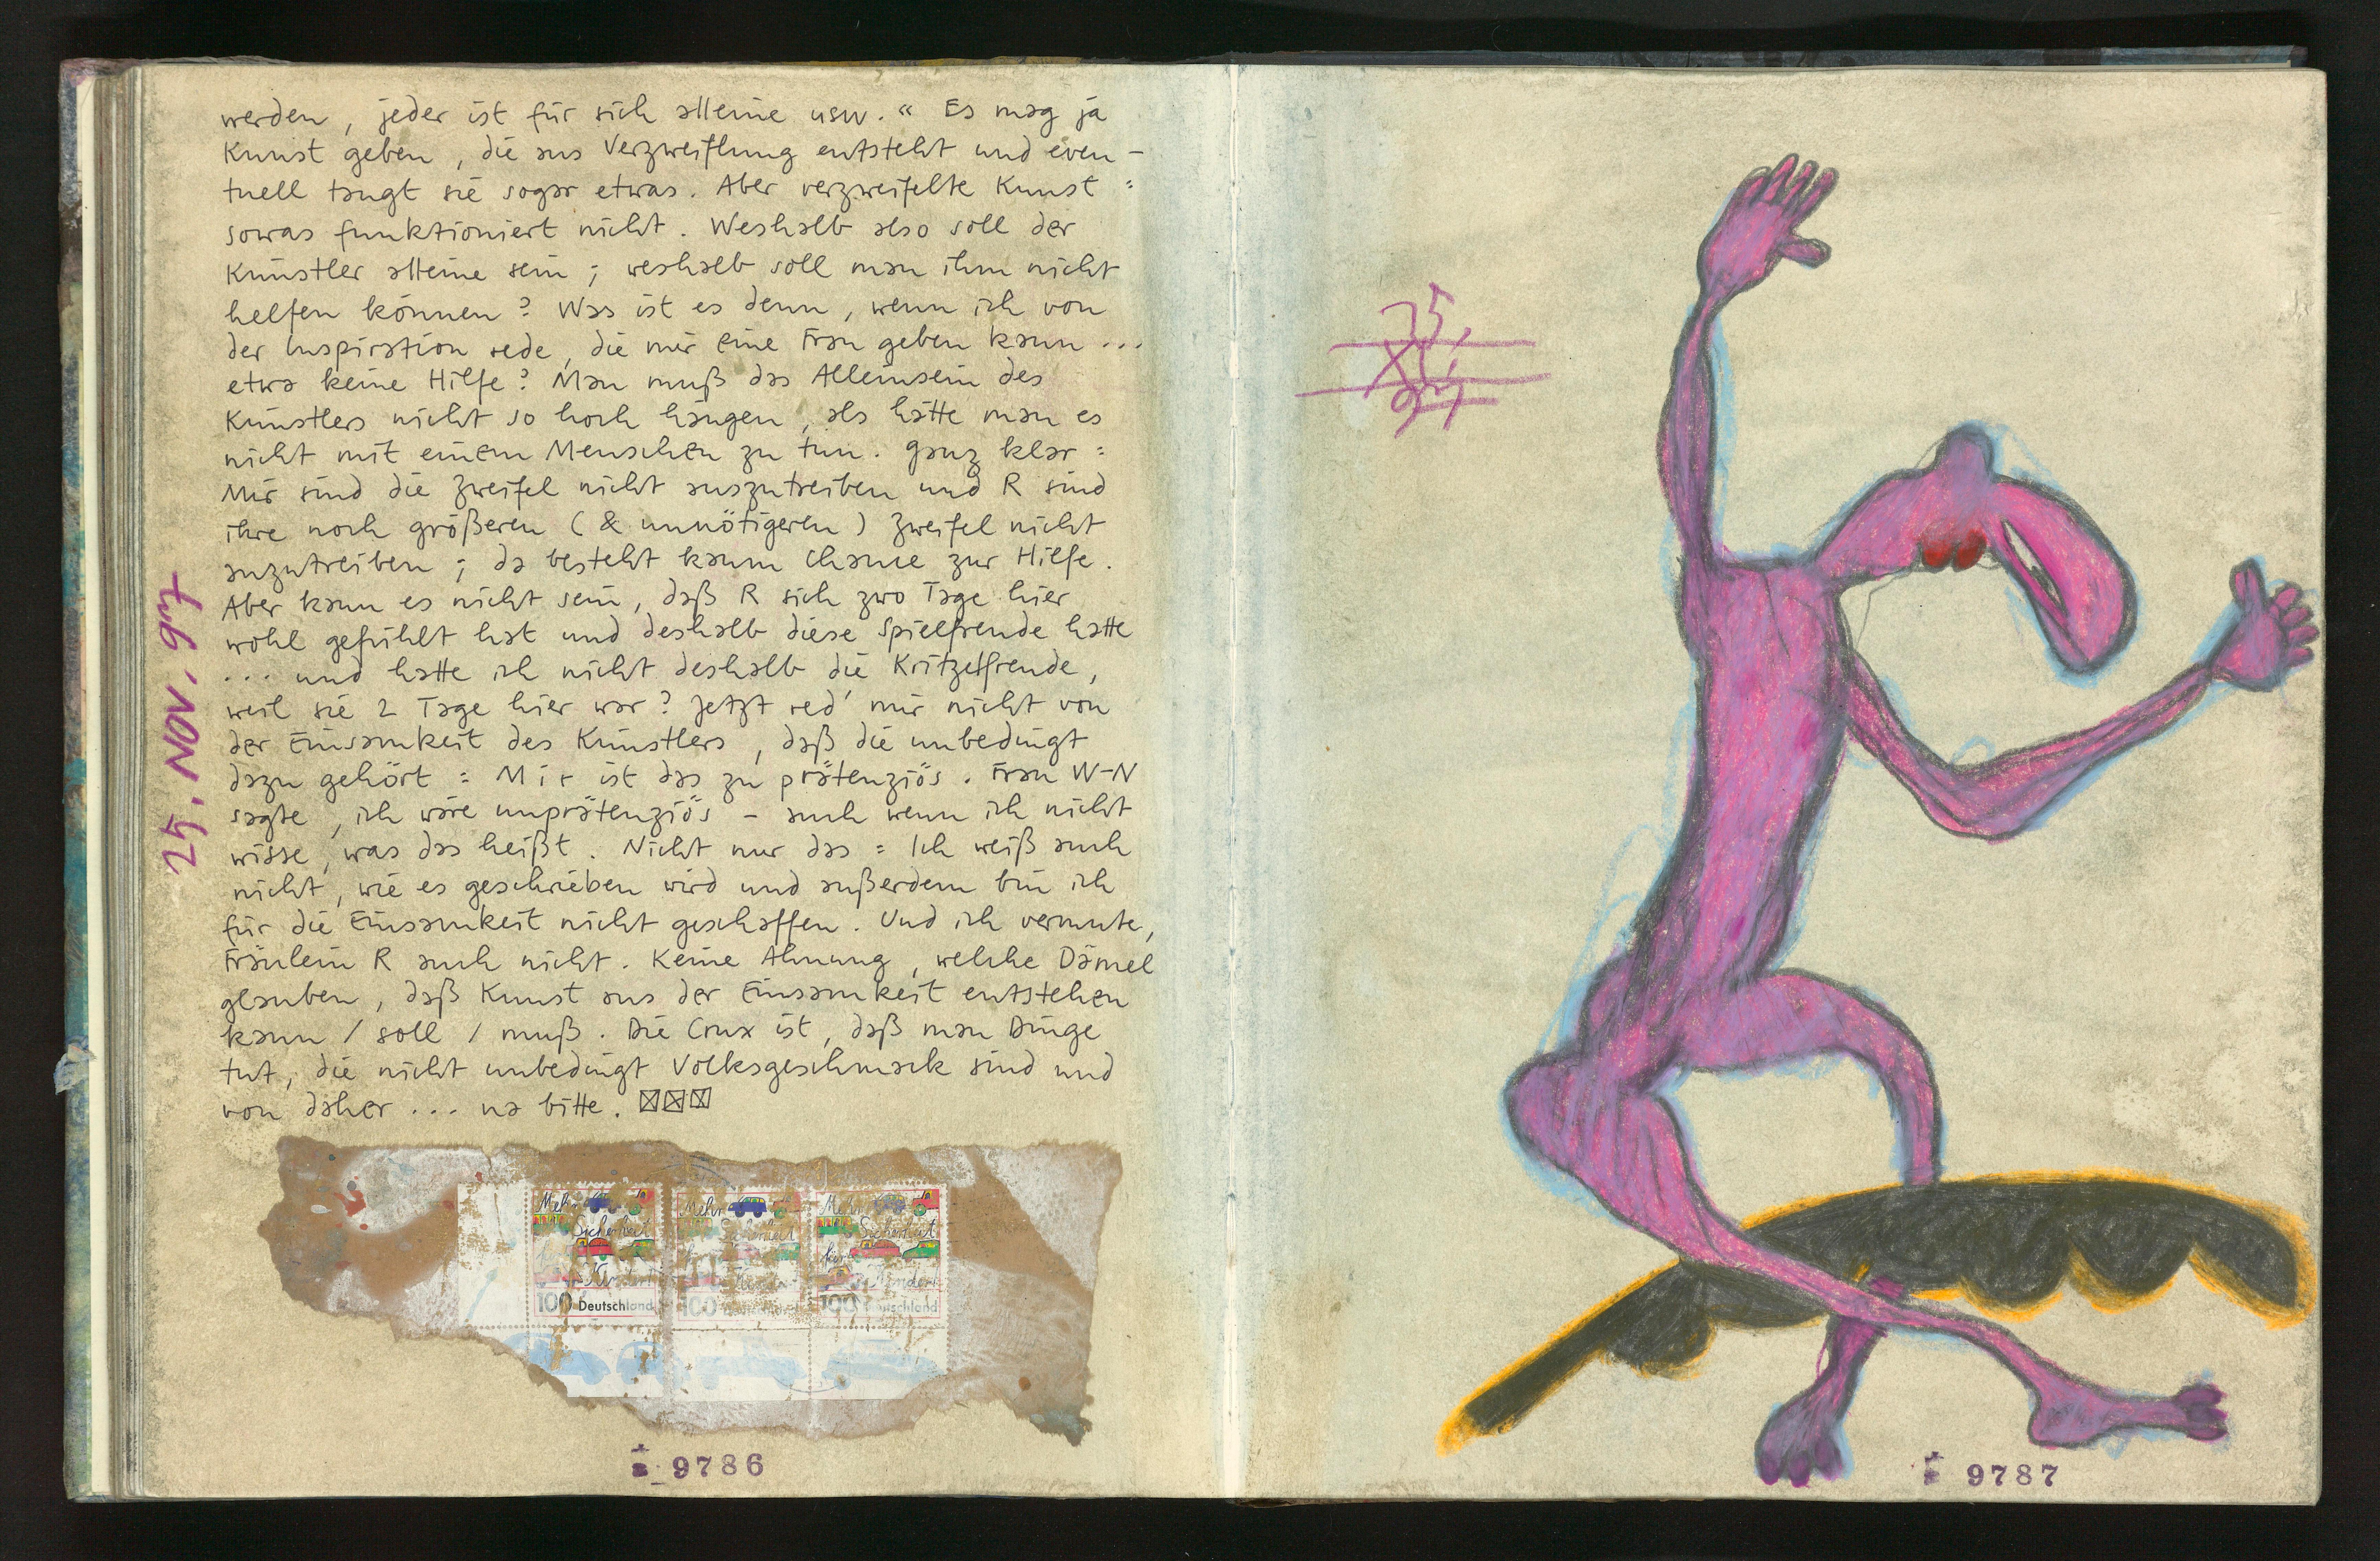 werden, jeder ist für sich alleine usw.“ Es mag ja
Kunst geben, die aus Verzweiflung entsteht und even-
tuell taugt sie sogar etwas. Aber verzweifelte Kunst:
sowas funktioniert nicht. Weshalb also soll der
Künstler alleine sein; weshalb soll man ihm nicht
helfen können? Was ist es denn, wenn ich von
der Inspiration rede, die mir eine Frau geben kann...
etwa keine Hilfe? Man muß das Alleinsein des
Künstlers nicht so hoch hängen, als hätte man es
nicht mit einem Menschen zu tun. Ganz klar:
Mir sind die Zweifel nicht auszutreiben und R sind
ihre noch größeren (& unnötigeren) Zweifel nicht
auszutreiben; da besteht kaum Chance zur Hilfe.
Aber kann es nicht sein, daß R sich zwo Tage hier
wohl gefühlt hat und deshalb diese Spielfreude hatte
... und hatte ich nicht deshalb die Kritzelfreude,
weil sie 2 Tage hier war? Jetzt red' mir nicht von
der Einsamkeit des Künstlers, daß die unbedingt
dazu gehört: Mir ist das zu prätenziös. Frau W-N
sagte, ich wäre unprätenziös - auch wenn ich nicht
wisse, was das heißt. Nicht nur das: Ich weiß auch
nicht, wie es geschrieben wird und außerdem bin ich
für die Einsamkeit nicht geschaffen. Und ich vermute,
Fräulein R auch nicht. Keine Ahnung, welche Dämel
glauben, daß Kunst aus der Einsamkeit entstehen
kann / soll / muß. Die Crux ist, daß man Dinge
tut, die nicht unbedingt Volksgeschmack sind und
von daher... na bitte.
25. NOV. 97
Mehr Sicherheit für Kinder
100 Deutschland
Mehr Sicherheit Kinder
100
Mehr Sicherheit für Kinder
100 Deutschland
9786
25.
XI.
97
9787